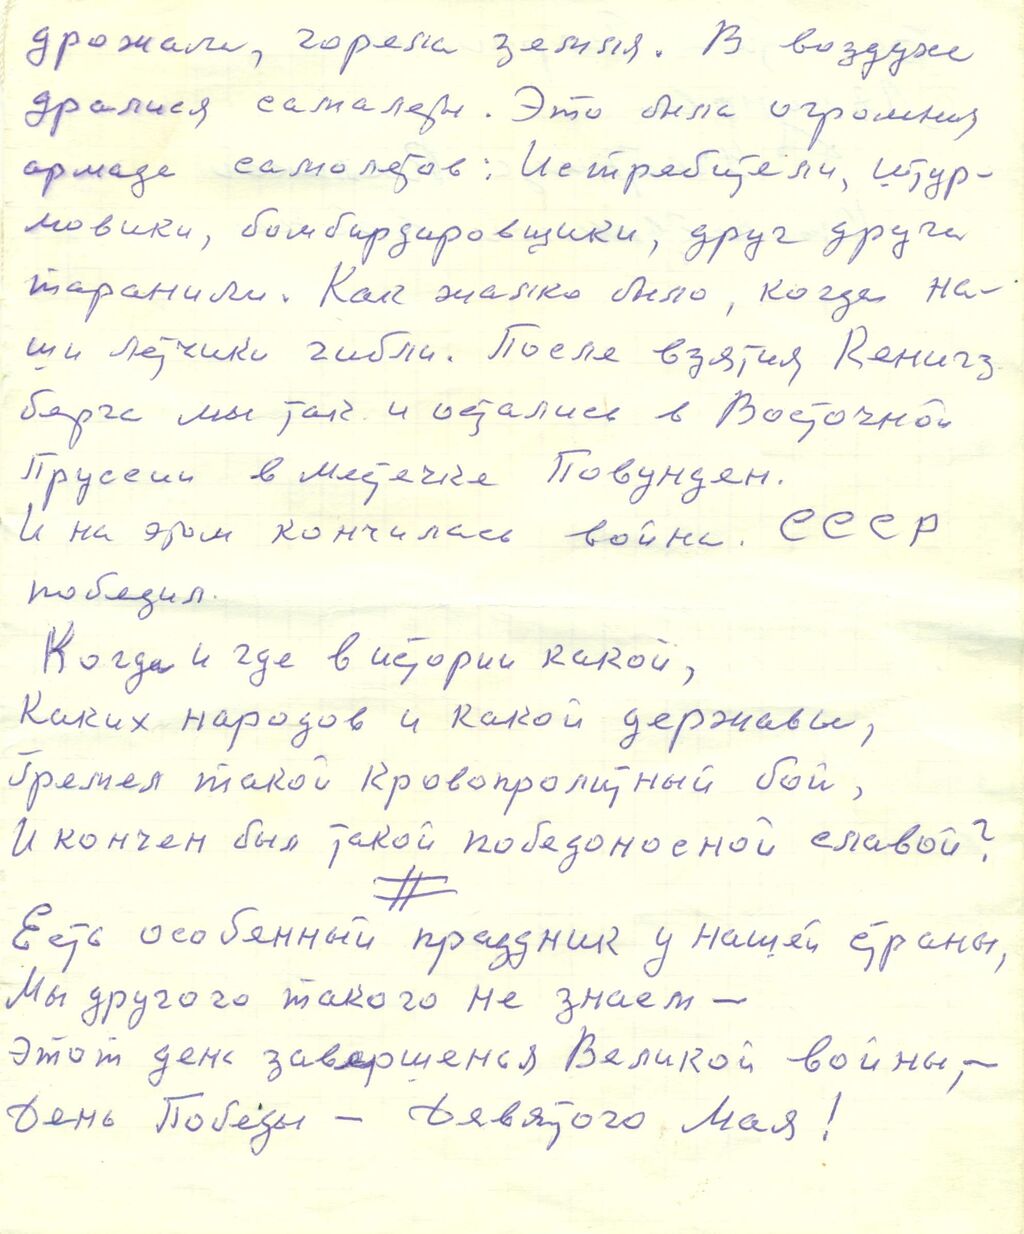 дрожала, горела земля. В воздухе
дралися самалеты. Это была огромная
армада самолетов: Истребители, штур-
мовики, бомбардировщики, друг друга
таранили. Как жалко было, когда на-
ши летчики гибли. После взятия Кенигз
берга мы так и остались в Восточной
Пруссии в местечке Повунден.
И на этом кончилась война. СССР
победил.
Когда и где в истории какой,
Каких народов и какой державы,
Гремел такой кровопролитный бой,
И кончен был такой победоносной славой?
#
Есть особенный праздник у нашей страны,
Мы другого такого не знаем –
Этот день завершенья Великой войны, –
День Победы – Девятого Мая!